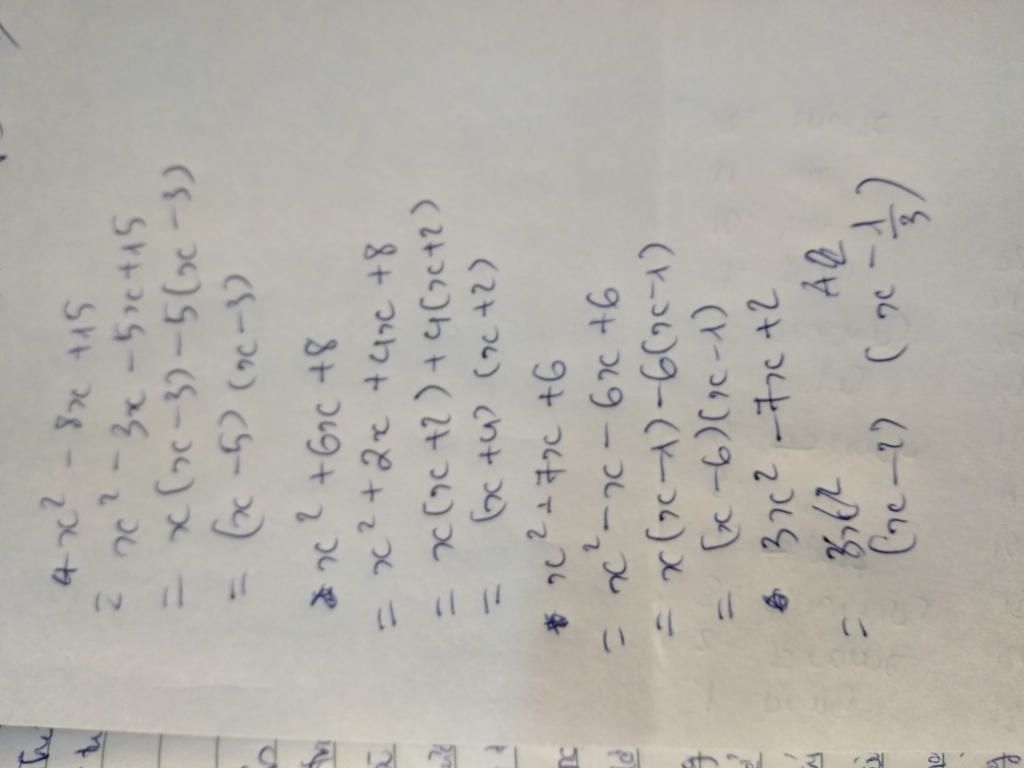 * x² - 8x + 15
= x² - 3x - 5x + 15
= x(x - 3) - 5(x - 3)
= (x - 5)(x - 3)
* x² + 6x + 8
= x² + 2x + 4x + 8
= x(x + 2) + 4(x + 2)
= (x + 4)(x + 2)
* x² - 7x + 6
= x² - x - 6x + 6
= x(x - 1) - 6(x - 1)
= (x - 6)(x - 1)
* 3x² - 7x + 2
=
(x - 2) (x - 1/3)